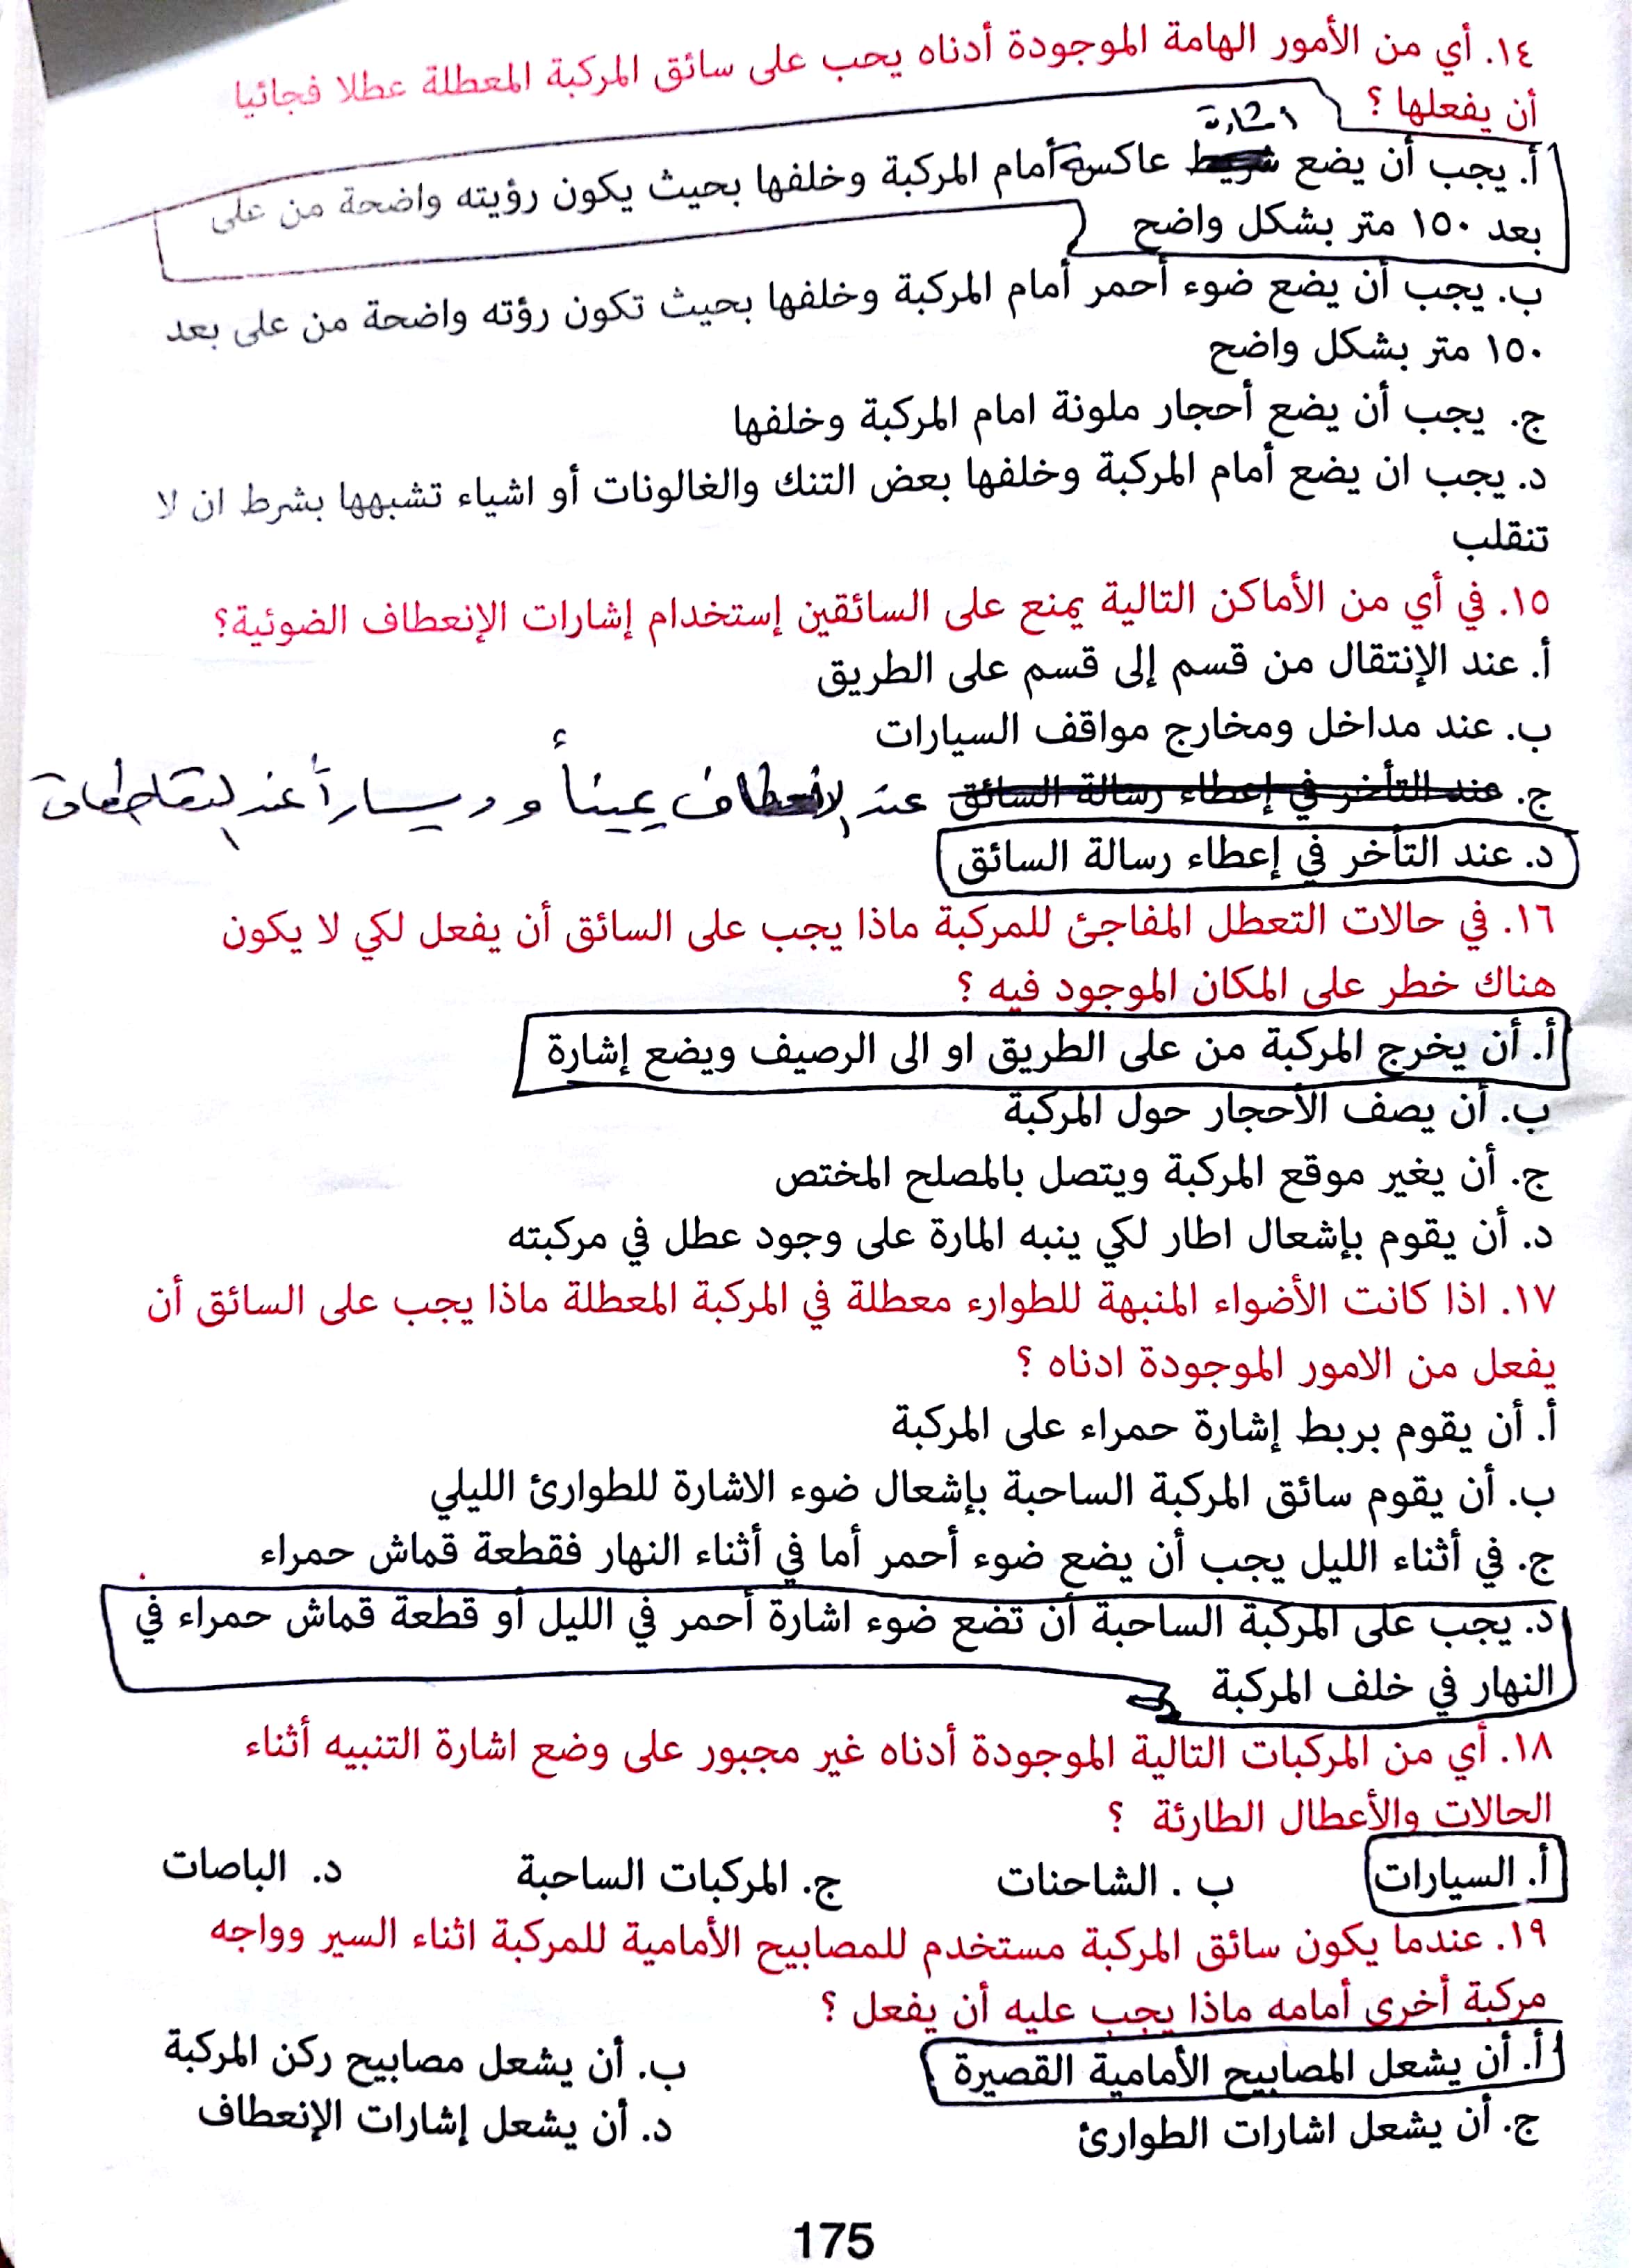 ١٤. أي من الأمور الهامة الموجودة أدناه يحب على سائق المركبة المعطلة عطلا فجائيا
أن يفعلها ؟
اشارة
أ. يجب أن يضع شريط عاكسة أمام المركبة وخلفها بحيث يكون رؤيته واضحة من على
بعد ١٥٠ متر بشكل واضح
ب. يجب أن يضع ضوء أحمر أمام المركبة وخلفها بحيث تكون رؤته واضحة من على بعد
١٥٠ متر بشكل واضح
ج. يجب أن يضع أحجار ملونة امام المركبة وخلفها
د. يجب ان يضع أمام المركبة وخلفها بعض التنك والغالونات أو اشياء تشبهها بشرط ان لا
تنقلب
١٥. في أي من الأماكن التالية يمنع على السائقين إستخدام إشارات الإنعطاف الضوئية؟
أ. عند الإنتقال من قسم إلى قسم على الطريق
ب. عند مداخل ومخارج مواقف السيارات
ج. عند التأخر في إعطاء رسالة السائق عند الانعطاف يميناً أو ويساراً عند التقاطعات
د. عند التأخر في إعطاء رسالة السائق
١٦. في حالات التعطل المفاجئ للمركبة ماذا يجب على السائق أن يفعل لكي لا يكون
هناك خطر على المكان الموجود فيه ؟
أ. أن يخرج المركبة من على الطريق او الى الرصيف ويضع إشارة
ب. أن يصف الأحجار حول المركبة
ج. أن يغير موقع المركبة ويتصل بالمصلح المختص
د. أن يقوم بإشعال اطار لكي ينبه المارة على وجود عطل في مركبته
١٧. اذا كانت الأضواء المنبهة للطوارء معطلة في المركبة المعطلة ماذا يجب على السائق أن
يفعل من الامور الموجودة ادناه ؟
أ. أن يقوم بربط إشارة حمراء على المركبة
ب. أن يقوم سائق المركبة الساحبة بإشعال ضوء الاشارة للطوارئ الليلي
ج. في أثناء الليل يجب أن يضع ضوء أحمر أما في أثناء النهار فقطعة قماش حمراء
د. يجب على المركبة الساحبة أن تضع ضوء اشارة أحمر في الليل أو قطعة قماش حمراء في
النهار في خلف المركبة
١٨. أي من المركبات التالية الموجودة أدناه غير مجبور على وضع اشارة التنبيه أثناء
الحالات والأعطال الطارئة ؟
أ. السيارات ب . الشاحنات ج. المركبات الساحبة د. الباصات
١٩. عندما يكون سائق المركبة مستخدم للمصابيح الأمامية للمركبة اثناء السير وواجه
مركبة أخرى أمامه ماذا يجب عليه أن يفعل ؟
أ. أن يشعل المصابيح الأمامية القصيرة ب. أن يشعل مصابيح ركن المركبة
ج. أن يشعل اشارات الطوارئ د. أن يشعل إشارات الإنعطاف
175